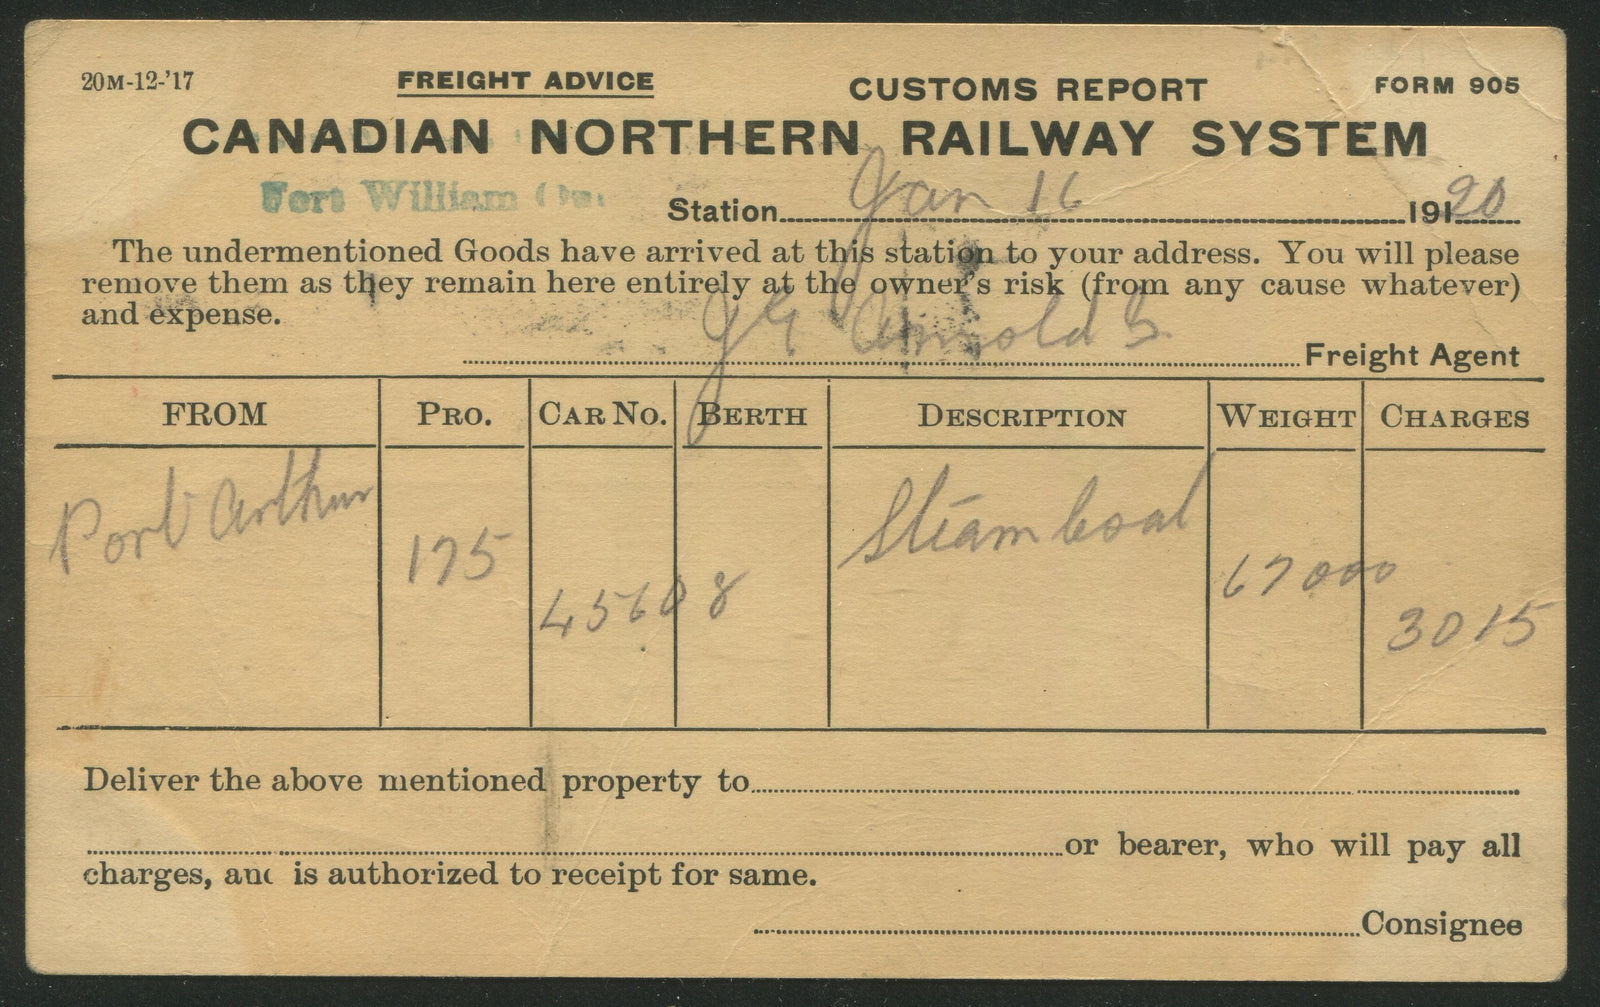 20M-12-'17 FREIGHT ADVICE CUSTOMS REPORT FORM 905
CANADIAN NORTHERN RAILWAY SYSTEM
Fort William
Station Jan 16 191 20
The undermentioned Goods have arrived at this station to your address. You will please
remove them as they remain here entirely at the owner's risk (from any cause whatever)
and expense.
Arnold Freight Agent
FROM PRO. CAR NO. BERTH DESCRIPTION WEIGHT CHARGES
Port Arthur 175 45608 Steam Coal 67000 3015
Deliver the above mentioned property to
or bearer, who will pay all
charges, and is authorized to receipt for same.
Consignee